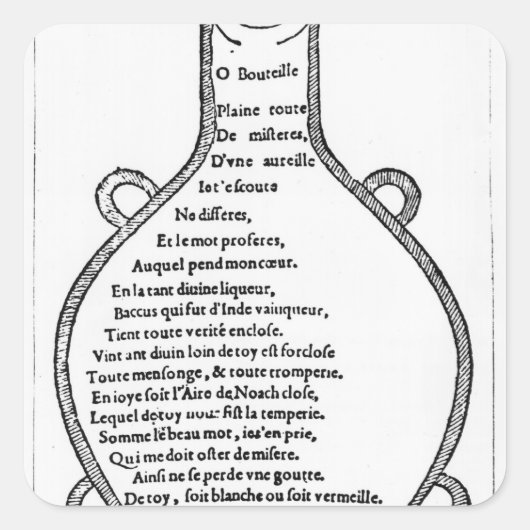 O Bouteille
Plaine toute
De misteres,
D'vne aureille
Iet'escoute
Ne differes,
Et le mot proferes,
Auquel pend mon cœur.
En la tant diuine liqueur,
Baccus qui fut d'Inde vainqueur,
Tient toute verité enclose.
Vint ant diuin loin de toy est forclose
Toute mensonge, & toute tromperie.
En ioye soit l'Aire de Noach close,
Lequel de toy nous fist la temperie.
Somme le beau mot, ie t'en prie,
Qui me doit oster de misere.
Ainsi ne se perde vne goutte.
De toy, soit blanche ou soit vermeille.